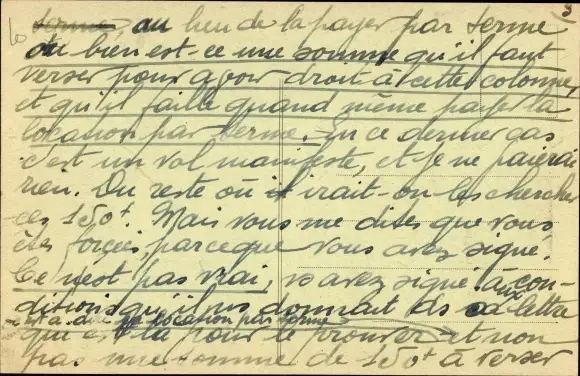 3
terme, au lieu de la payer par terme
ou bien est-ce une somme qu'il faut
verser pour avoir droit à cette colonne,
et qu'il faille quand même payer la
location par terme. En ce dernier cas
c'est un vol manifeste, et je ne paierai
rien. Du reste où irait-on les chercher
ces 150f. Mais vous me dites que vous
êtes forcés, parce que vous avez signé.
Ce n'est pas vrai, vs avez signé aux con-
ditions qu'il vous donnait ds sa lettre
c'est à dire location par terme
qui est là pour le prouver et non
pas une somme de 150f à verser